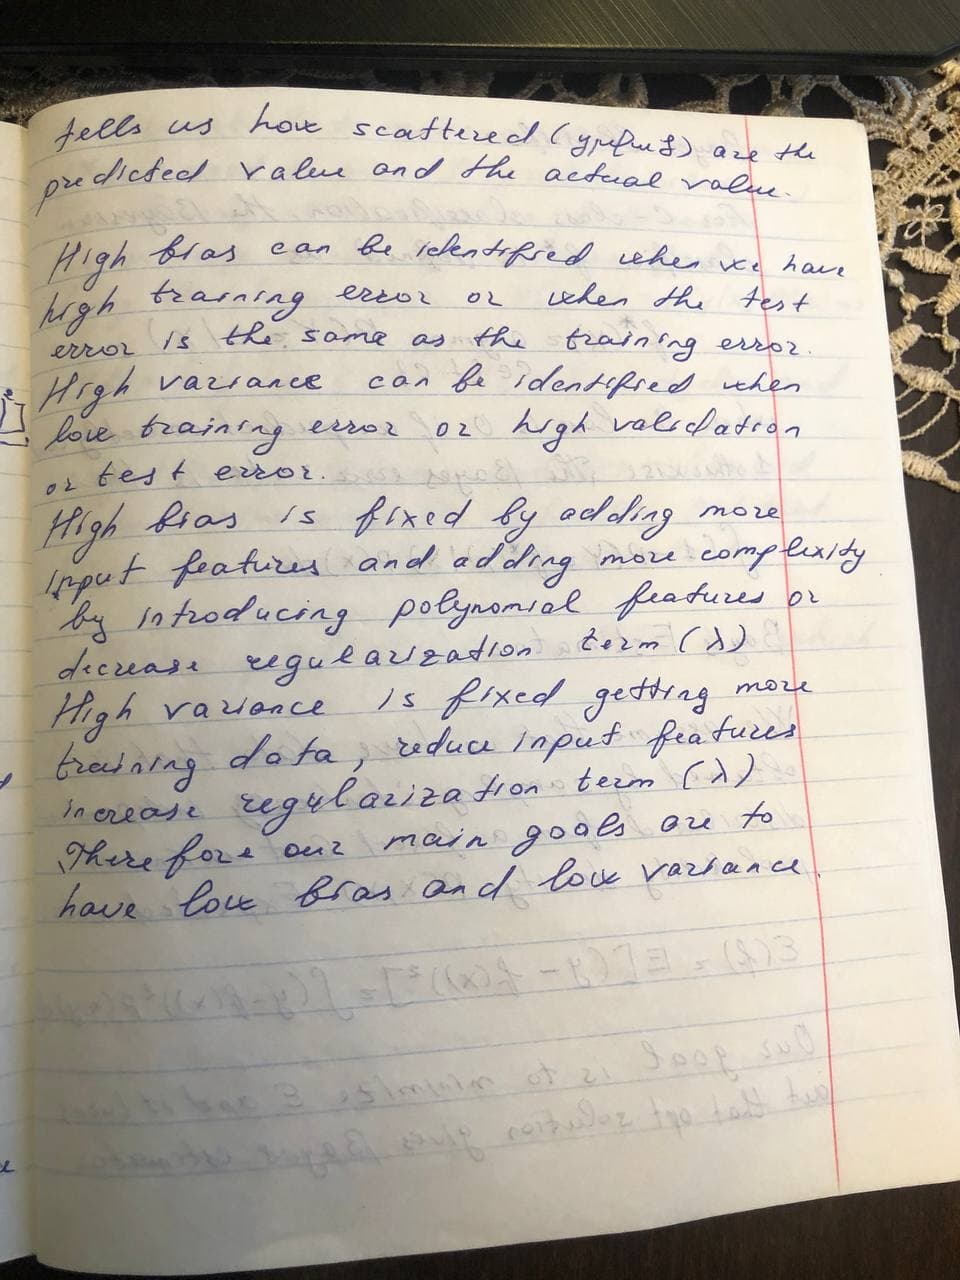 tells us how scattered ( ) are the
predicted value and the actual value.
High bias can be identified when we have
high training error or when the test
error is the same as the training error.
High variance can be identified when
low training error or high validation
or test error.
High bias is fixed by adding more
input features and adding more complexity
by introducing polynomial features or
decrease regularization term (λ)
High variance is fixed getting more
training data, reduce input features
increase regularization term (λ)
Therefore our main goals are to
have low bias and low variance.